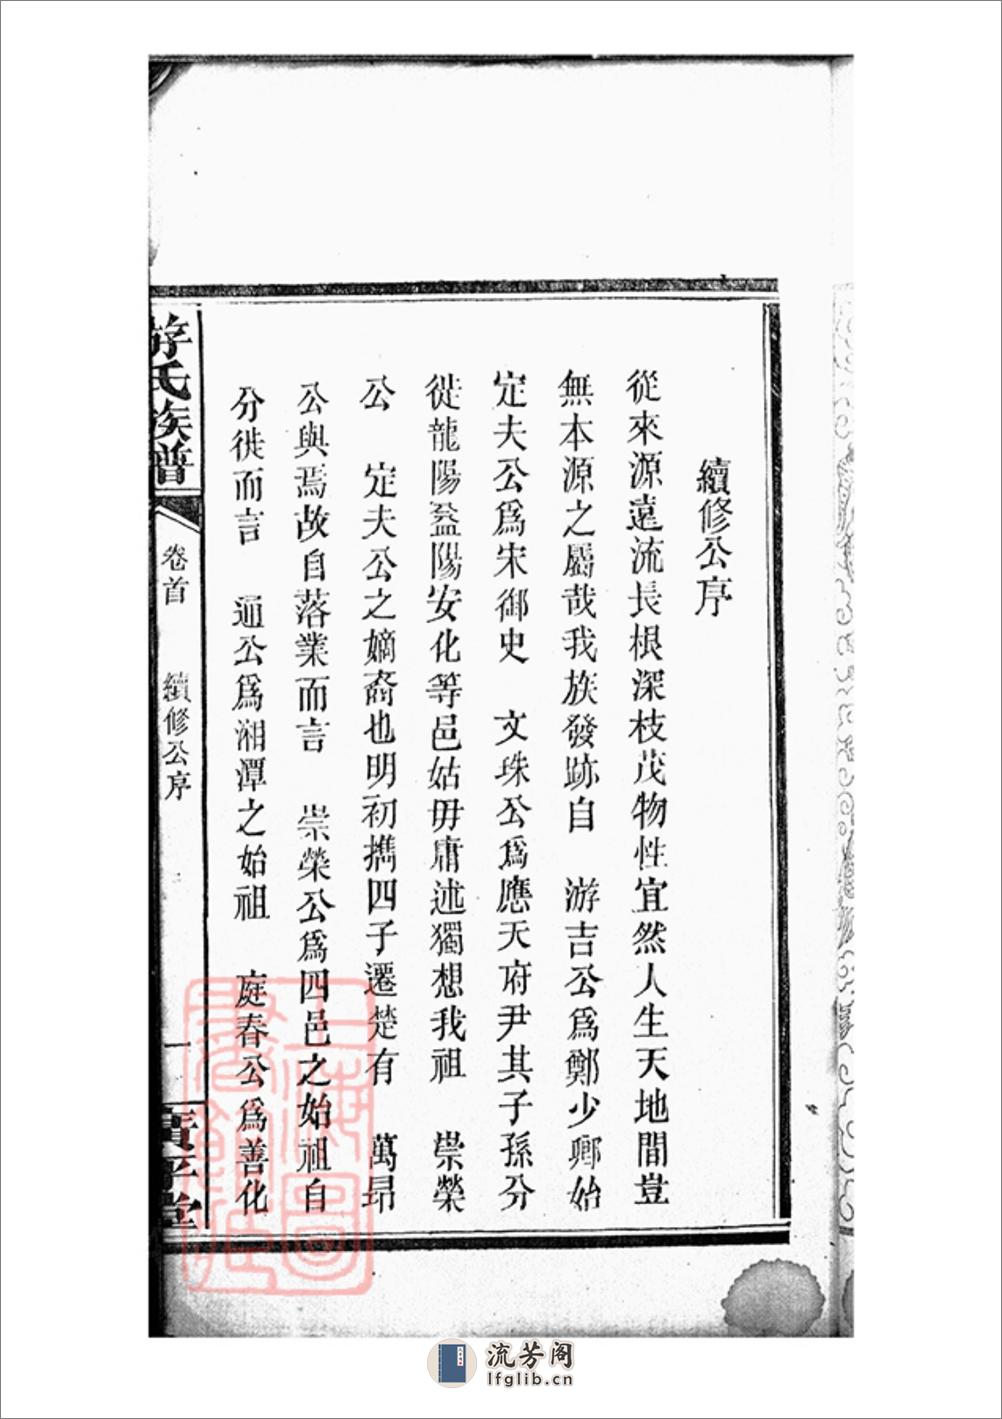 續修公序
從來源遠流長根深枝茂物性宜然人生天地間豈
無本源之屬哉我族發跡自　游吉公爲鄭少卿始
定夫公爲宋御史　文珠公爲應天府尹其子孫分
徙龍陽益陽安化等邑姑毋庸述獨想我祖　崇榮
公　定夫公之嫡裔也明初攜四子遷楚有　萬昂
公與焉故自落業而言　崇榮公爲四邑之始祖自
分徙而言　通公爲湘潭之始祖　庭春公爲善化
游氏族譜
卷首　續修公序　一
廣平堂
上海圖書館藏
流芳阁
lfglib.cn